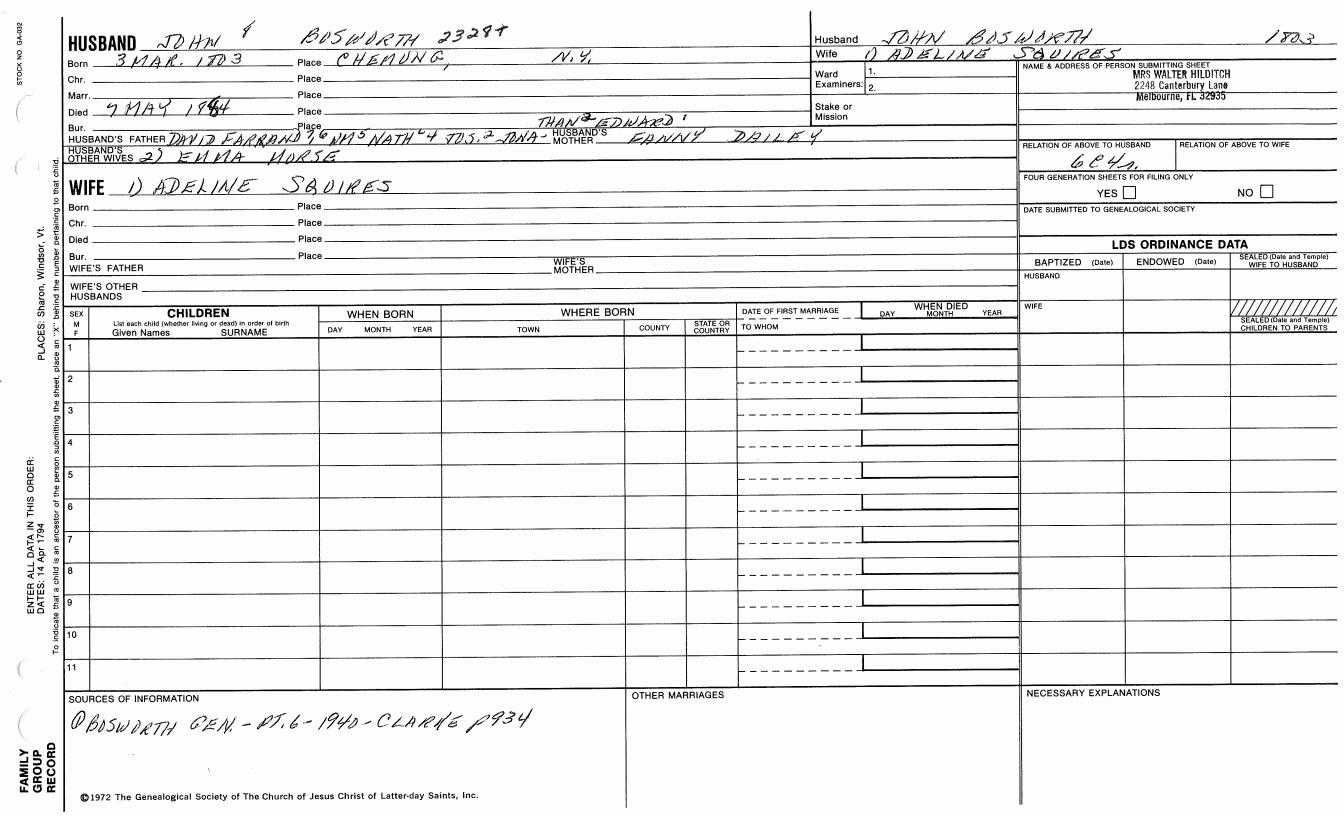 STOCK NO GA-032
HUSBAND JOHN 8 BOSWORTH 2328+
Born 3 MAR. 1803 Place CHEMUNG, N.Y.
Chr. Place
Marr. Place
Died 7 MAY Place
Bur. Place
THAN 2 EDWARD 1
HUSBAND'S FATHER DAVID FARRAND 7, 6 WM 5 NATH'L 4 JOS. 2 JONA- HUSBAND'S MOTHER FANNY DAILEY
HUSBAND'S OTHER WIVES 2) EMMA MORSE
WIFE 1) ADELINE SQUIRES
Born Place
Chr. Place
Died Place
Bur. Place
WIFE'S FATHER WIFE'S MOTHER
WIFE'S OTHER HUSBANDS
Husband JOHN BOSWORTH 1803
Wife 1) ADELINE SQUIRES
Ward Examiners: 1.
2.
Stake or Mission
NAME & ADDRESS OF PERSON SUBMITTING SHEET
MRS WALTER HILDITCH
2248 Canterbury Lane
Melbourne, FL 32935
RELATION OF ABOVE TO HUSBAND RELATION OF ABOVE TO WIFE
6C4r.
FOUR GENERATION SHEETS FOR FILING ONLY
YES NO
DATE SUBMITTED TO GENEALOGICAL SOCIETY
LDS ORDINANCE DATA
BAPTIZED (Date) ENDOWED (Date) SEALED (Date and Temple) WIFE TO HUSBAND
HUSBAND
WIFE
SEALED (Date and Temple) CHILDREN TO PARENTS
SEX M F
CHILDREN
List each child (whether living or dead) in order of birth
Given Names SURNAME
WHEN BORN
DAY MONTH YEAR
WHERE BORN
TOWN COUNTY STATE OR COUNTRY
DATE OF FIRST MARRIAGE
TO WHOM
WHEN DIED
DAY MONTH YEAR
1
2
3
4
5
6
7
8
9
10
11
SOURCES OF INFORMATION
① BOSWORTH GEN. - PT. 6 - 1940 - CLARKE p934
OTHER MARRIAGES
NECESSARY EXPLANATIONS
©1972 The Genealogical Society of The Church of Jesus Christ of Latter-day Saints, Inc.
FAMILY GROUP RECORD
ENTER ALL DATA IN THIS ORDER:
DATES: 14 Apr 1794
PLACES: Sharon, Windsor, Vt.
To indicate that a child is an ancestor of the person submitting the sheet, place an "X" behind the number pertaining to that child.